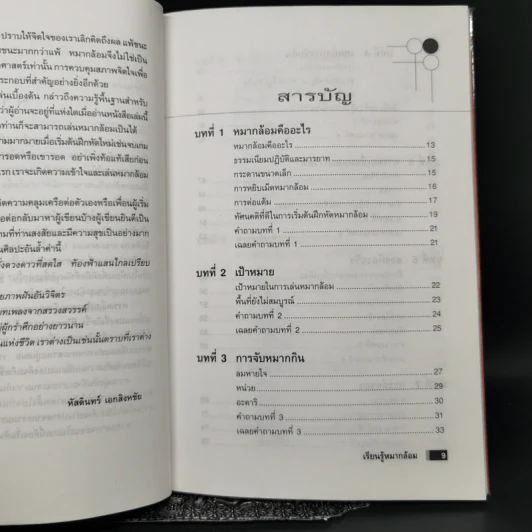 ปราบให้จิตใจของเราเลิกคิดถึงผล แพ้ชนะ
ชนะมากกว่าแพ้ หมากล้อมจึงไม่ใช่เป็น
ศาสตร์เท่านั้น การควบคุมสภาพจิตใจเพื่อ
ระกอบที่สำคัญอย่างยิ่งอีกด้วย
ล่นเบื้องต้น กล่าวถึงความรู้พื้นฐานสำหรับ
ว่าผู้อ่านจะอยู่ที่แห่งใดเมื่ออ่านหนังสือเล่มนี้
ท่านก็จะสามารถเล่นหมากล้อมเป็นได้
ามมากมายเมื่อเริ่มต้นฝึกหัดใหม่เช่นจบเกม
ารอดหรือเขารอด อย่าเพิ่งท้อแท้เสียก่อน
รก เราจะเกิดความเข้าใจและเล่นหมากล้อม
กิดความคลุมเครือต่อตัวเองหรือเพื่อนผู้เริ่ม
ต่อกลับมาหาผู้เขียนบ้างผู้เขียนยินดีเป็น
ามที่ท่านสงสัยและมีความสุขเป็นอย่างมาก
นศิลปะอันล้ำค่านี้
ั่งดวงดาวที่สดใส ท้องฟ้าแสนไกลเปรียบ
ยภาพฝันอันวิจิตร
บทเพลงจากสรวงสวรรค์
ผู้ผู้กร้ำศึกอย่างยาวนาน
นแห่งชีวิต เราต่างเป็นเช่นนั้นตราบที่เราต่าง
หัสดินทร์ เอกสิงหชัย
สารบัญ
บทที่ 1 หมากล้อมคืออะไร
หมากล้อมคืออะไร 13
ธรรมเนียมปฏิบัติและมารยาท 15
กระดานขนาดเล็ก 15
การหยิบเม็ดหมากล้อม 16
การต่อแต้ม 17
ทัศนคติที่ดีในการเริ่มต้นฝึกหัดหมากล้อม 19
คำถามบทที่ 1 21
เฉลยคำถามบทที่ 1 21
บทที่ 2 เป้าหมาย
เป้าหมายในการเล่นหมากล้อม 22
พื้นที่ยังไม่สมบูรณ์ 23
คำถามบทที่ 2 24
เฉลยคำถามบทที่ 2 25
บทที่ 3 การจับหมากกิน
ลมหายใจ 27
หน่วย 29
อะตาริ 30
คำถามบทที่ 3 31
เฉลยคำถามบทที่ 3 33
เรียนรู้หมากล้อม 9